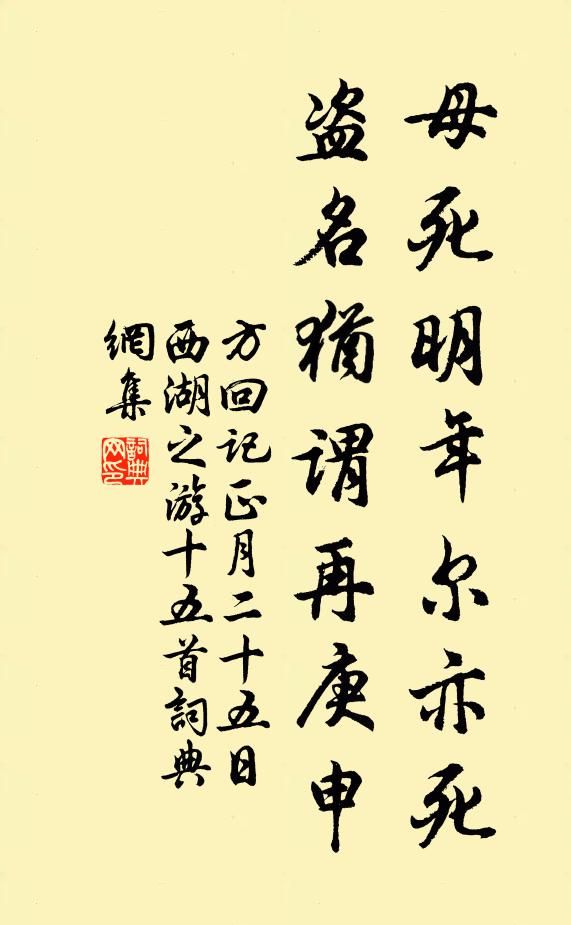 毋死明年尔亦死
盗名犹谓再庚申
方回记正月二十五日
西湖之游十五首詞典
網集
詞典網印